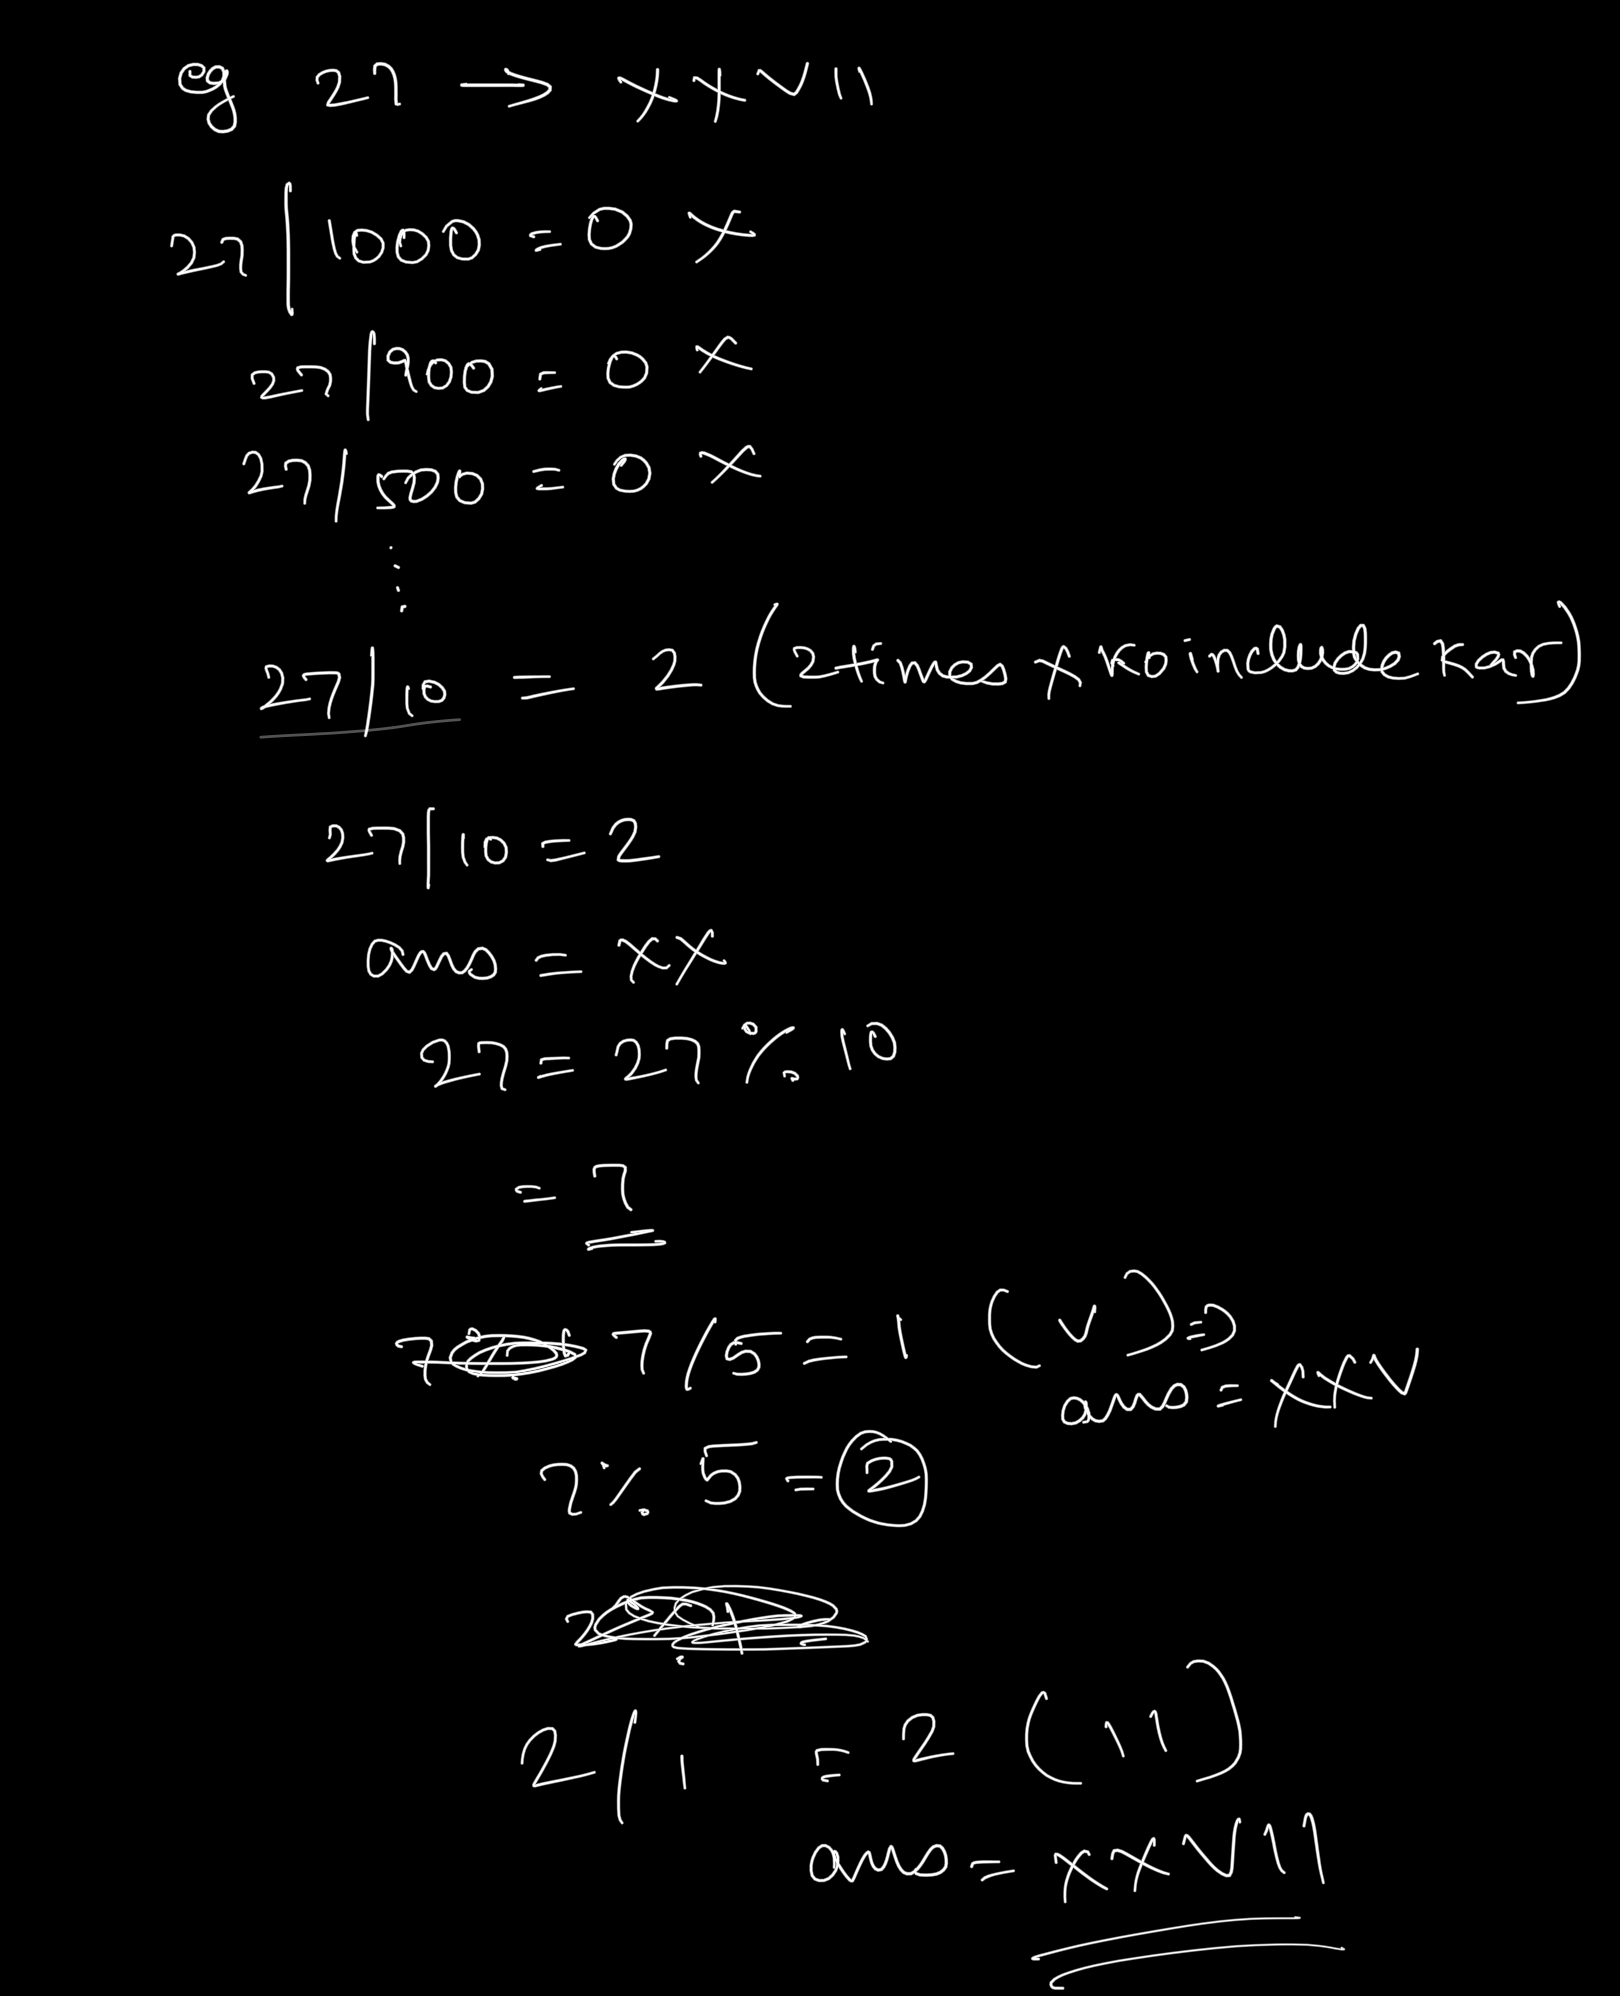 eg 27 → XXVII
27 | 1000 = 0 X
27 / 900 = 0 X
27 / 500 = 0 X
27 / 10 = 2 (2 times X ko include kar)
27 | 10 = 2
ans = XX
27 = 27 % 10
= 7
7 7 / 5 = 1 (V) =>
ans = XXV
7 % 5 = 2
2
2 / 1 = 2 (II)
ans = XXVII